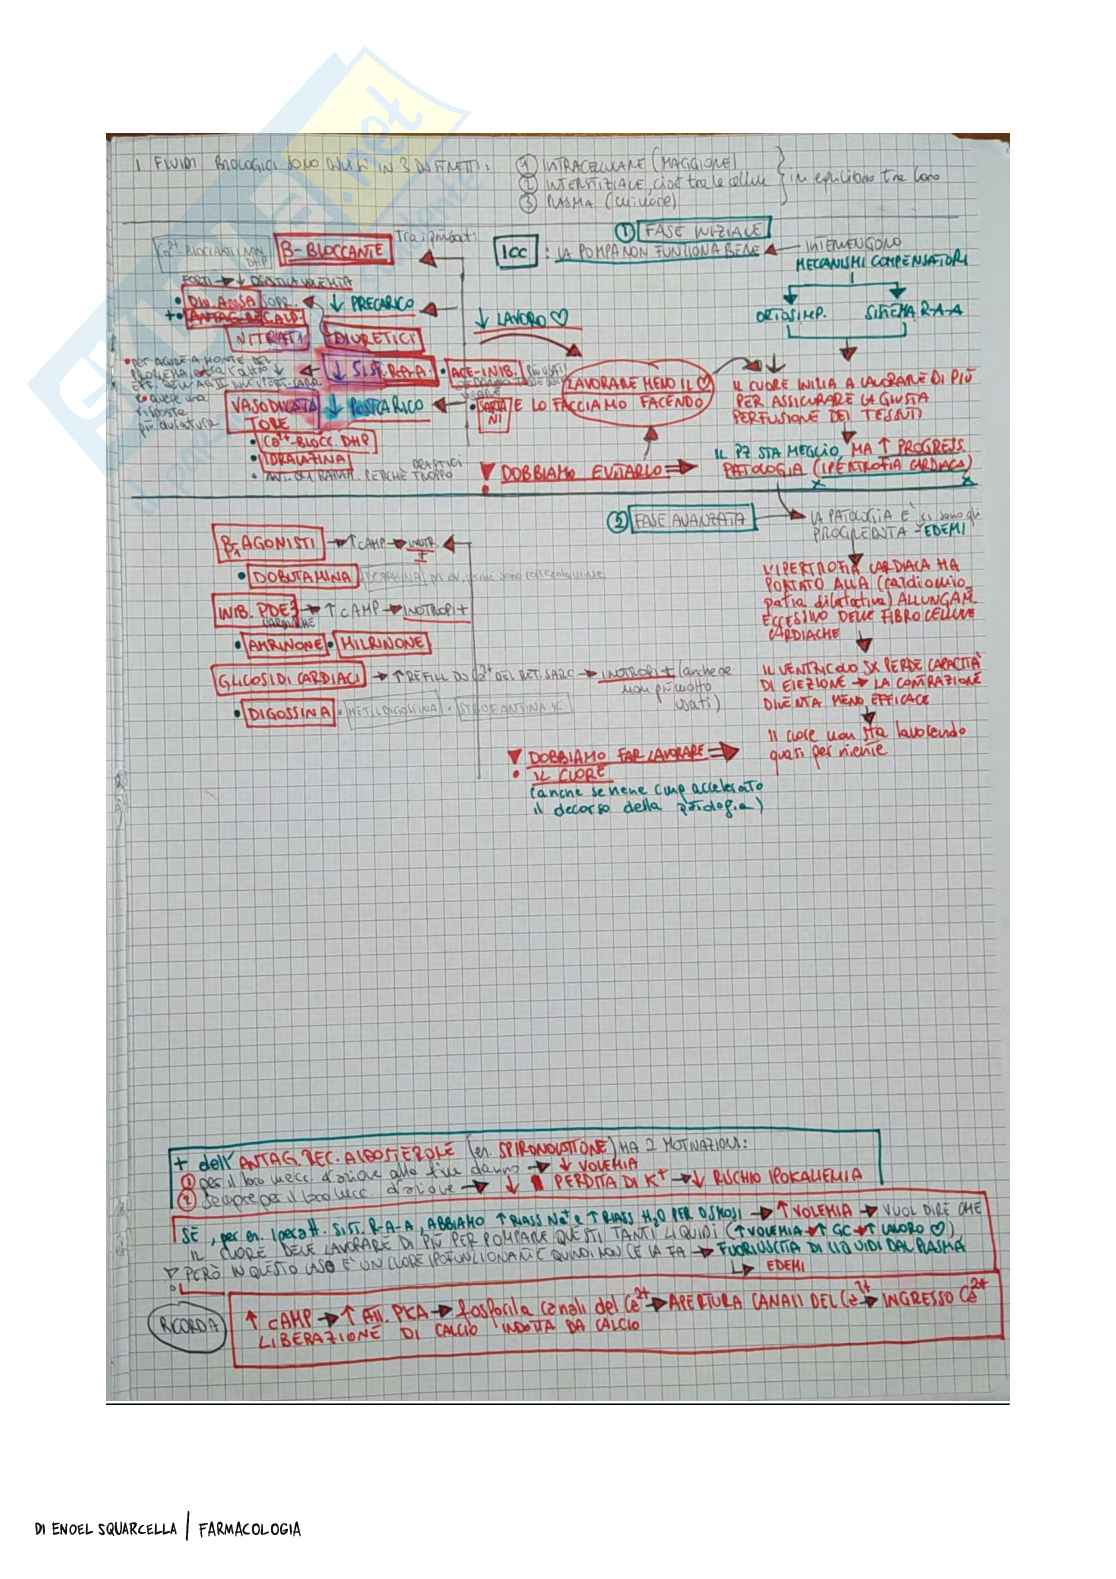 I FLUIDI BIOLOGICI SONO DIVISI IN 3 DISTRETTI:
① INTRACELLULARE (MAGGIORE)
② INTERSTIZIALE, cioè tra le cellule
③ PLASMA (minore)
in equilibrio tra loro
① FASE INIZIALE
ICC : LA POMPA NON FUNZIONA BENE
INTERVENGONO
MECCANISMI COMPENSATORI
ORTOSIMP. SISTEMA R-A-A
IL CUORE INIZIA A LAVORARE DI PIÙ
PER ASSICURARE LA GIUSTA
PERFUSIONE DEI TESSUTI
IL PZ STA MEGLIO, MA ↑ PROGRESS.
PATOLOGIA (IPERTROFIA CARDIACA)
DOBBIAMO EVITARLO
LAVORARE MENO IL ♡
E LO FACCIAMO FACENDO
↓ LAVORO ♡
Ca2+-BLOCCANTI NON
DHP
β-BLOCCANTE
Tra i primati
FORTI → ↓ DRASTICA VOLEMIA
• DIU. ANSA SOPR.
+• ANTAG. REC. ALD.
↓ PRECARICO
NITRATI DIURETICI
↓ SIST. R-A-A • ACE-INIB.
• SARTANI
• PER AGIRE A MONTE DEL
PROBLEMA
risposta
più duratura
VASODILATATORE
↓ POSTCARICO
• Ca2+-BLOCC DHP
• IDRALAZINA
PERCHÉ TROPPO DRASTICI
② FASE AVANZATA
LA PATOLOGIA È
PROGREDITA - ci sono gli EDEMI
L'IPERTROFIA CARDIACA HA
PORTATO ALLA (cardiomio
patia dilatativa) ALLUNGAM.
ECCESSIVO DELLE FIBROCELLULE
CARDIACHE
IL VENTRICOLO SX PERDE CAPACITÀ
DI EIEZIONE → LA CONTRAZIONE
DIVENTA MENO EFFICACE
Il cuore non sta lavorando
quasi per niente
DOBBIAMO FAR LAVORARE
IL CUORE
(anche se viene cmq accelerato
il decorso della patologia)
β1 AGONISTI → ↑ cAMP → INOTR. +
• DOBUTAMINA
INIB. PDE3 → ↑ cAMP → INOTROPI +
CARDIACHE
• AMRINONE • MILRINONE
GLICOSIDI CARDIACI → ↑ REFILL DI Ca2+ DEL RET. SARC → INOTROPI + (anche se
non più molto
usati)
• DIGOSSINA • METILDIGOSSINA • STROFANTINA K
+ dell'ANTAG. REC. ALDOSTERONE (es. SPIRONOLATTONE) HA 2 MOTIVAZIONI:
① per il loro mecc d'azione alla fine danno → ↓ VOLEMIA
② Sempre per il loro mecc d'azione → ↓ PERDITA DI K+ → ↓ RISCHIO IPOKALIEMIA
SE, per es. iperatt. SIST. R-A-A, ABBIAMO ↑ RIASS Na+ e ↑ RIASS H2O PER OSMOSI → ↑ VOLEMIA → VUOL DIRE CHE
IL CUORE DEVE LAVORARE DI PIÙ PER POMPARE QUESTI TANTI LIQUIDI (↑ VOLEMIA → ↑ GC → ↑ LAVORO ♡)
PERÒ IN QUESTO CASO È UN CUORE IPOFUNZIONANTE QUINDI NON CE LA FA → FUORIUSCITA DI LIQUIDI DAL PLASMA
↳ EDEMI
RICORDA
↑ cAMP → ↑ Att. PKA → fosforila canali del Ca2+ → APERTURA CANALI DEL Ca2+ → INGRESSO Ca2+
LIBERAZIONE DI CALCIO INDOTTA DA CALCIO
DI ENOEL SQUARCELLA | FARMACOLOGIA